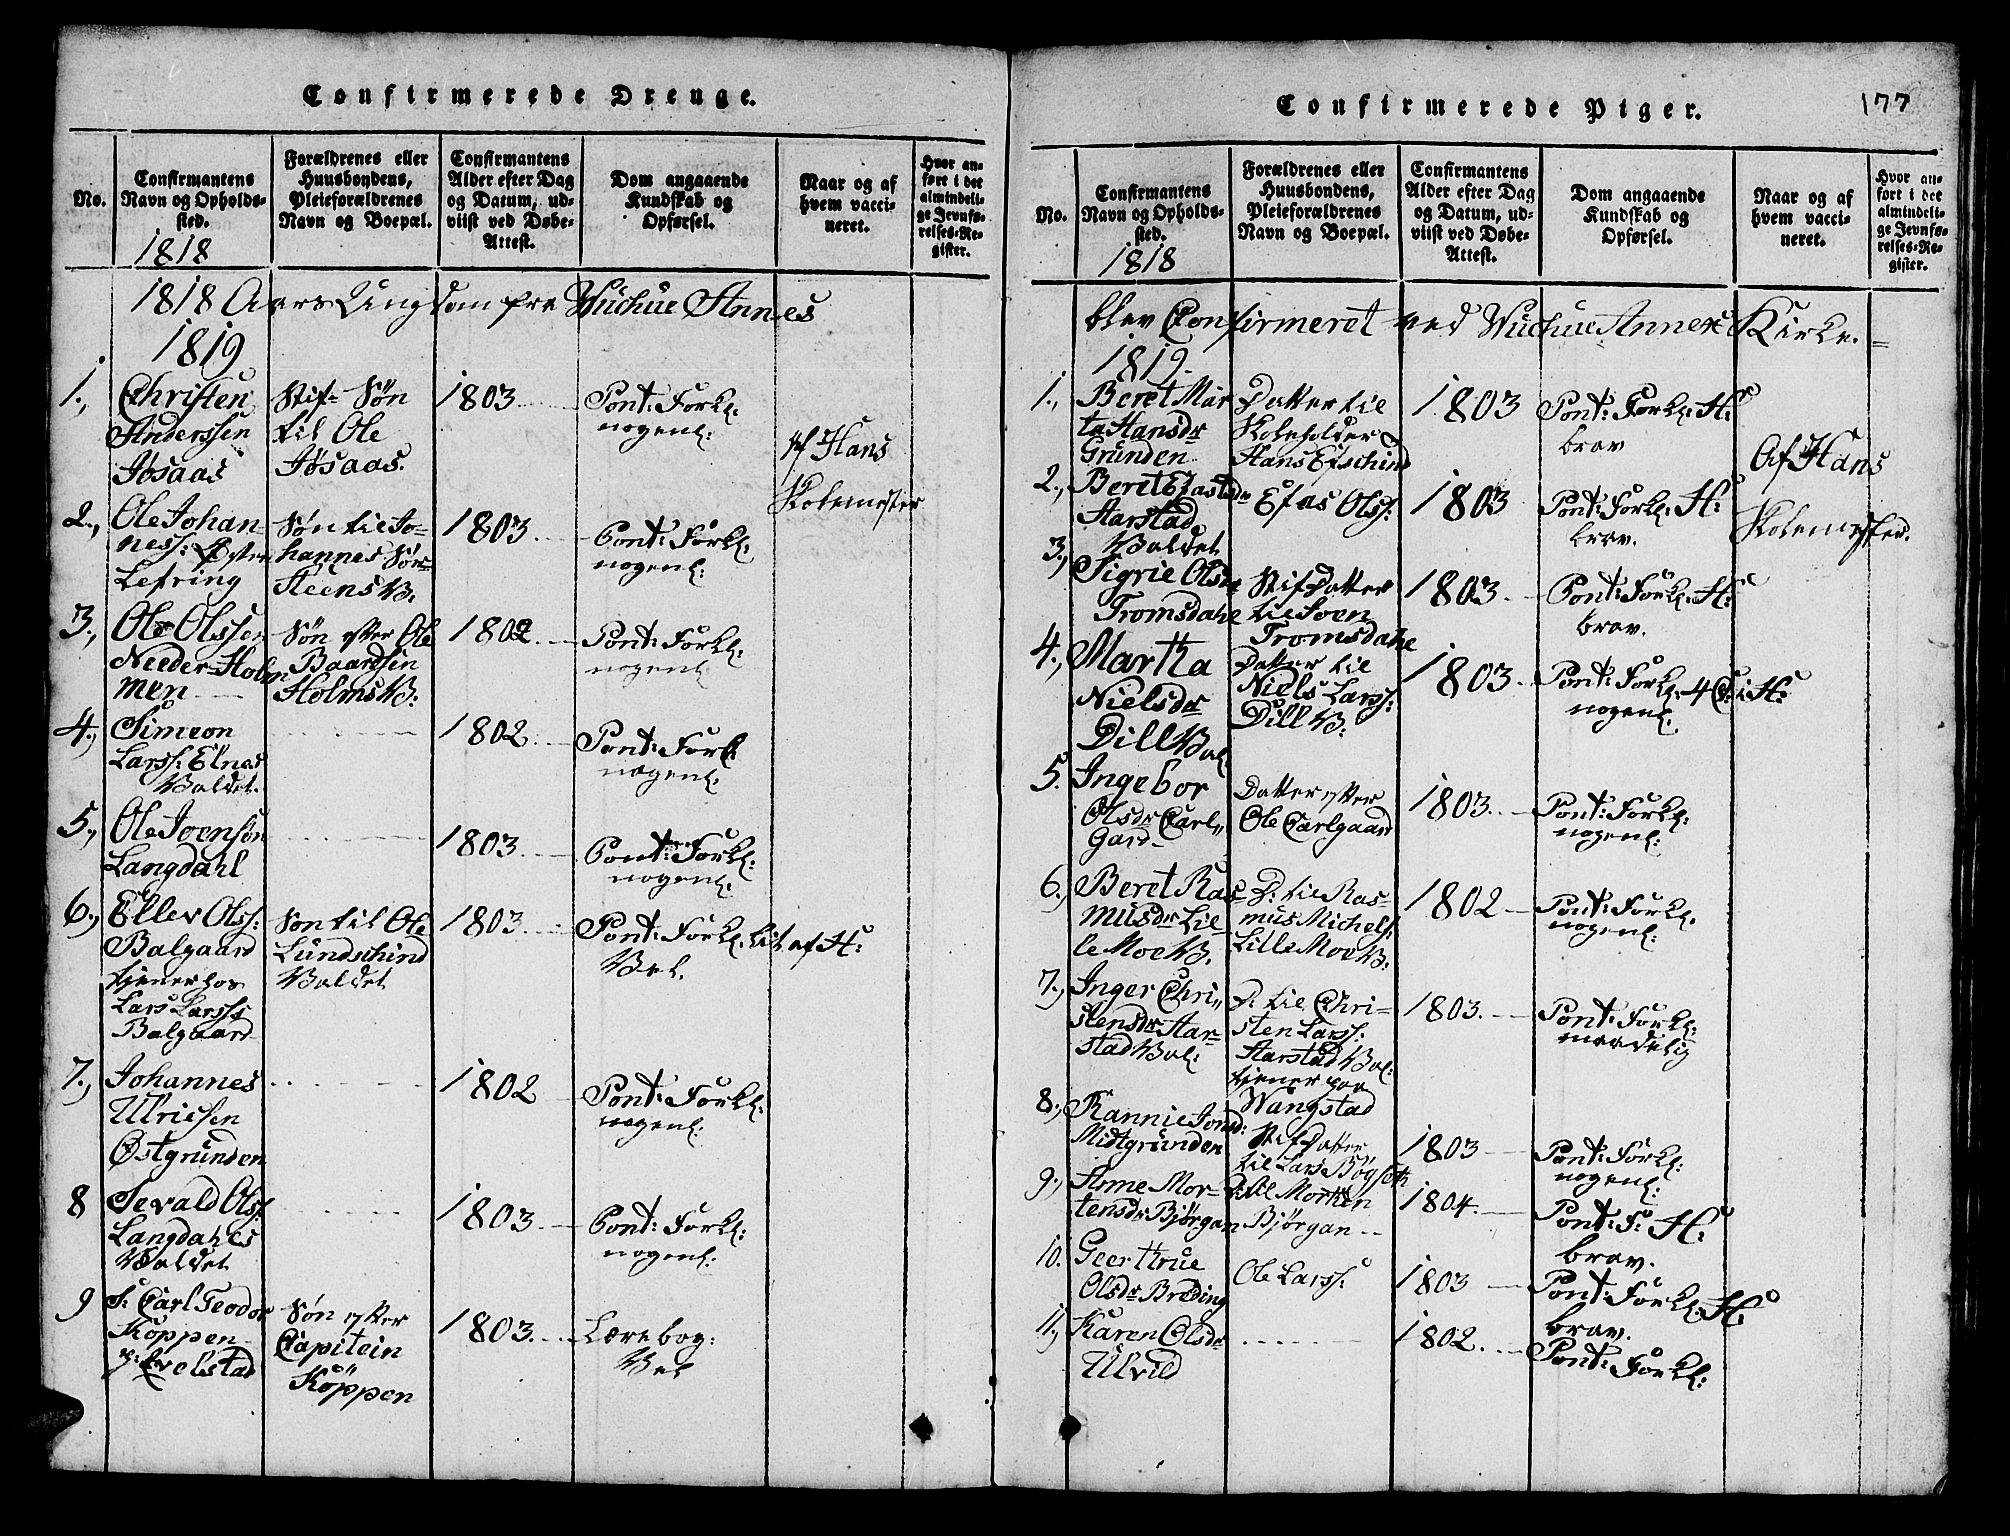 Confirmerede Drenge.
No.
Confirmantens
Navn og Opholds-
sted.
1818
Forældrenes eller
Huusbondens,
Pleieforældrenes
Navn og Boepæl.
Confirmantens
Alder efter Dag
og Datum, ud-
viist ved Døbe-
Attest.
Dom angaaende
Kundskab og
Opførsel.
Naar og af
hvem vacci-
neret.
Hvor an-
ført i det
almindeli-
ge Jevnfø-
relses-Re-
gister.
1818 Aars Ungdom fra Vuchue Annes
1819
1., Christen
Anderssen
Jøsaas
Stif= Søn
til Ole
Jøsaas.
1803
Pont: Forkl:
nogenl:
af Hans
Skolemester
2., Ole Johan-
ness:
Lefring
Søn til Jo-
hannes
1803
Pont: Forkl:
nogenl:
3., Ole Olssen
Needer-Holm
men
Søn efter Ole
Baardsen
Holms V:
1802
Pont: Forkl:
nogenl:
4., Simeon
Larss: Elnas
Valdet.
1802
Pont: Forkl:
nogenl:
5., Ole Joensøn
Langdahl
1803
Pont: Forkl:
nogenl:
6., Ellev Olss:
Balgaard
tjener hos
Lars Larss
Balgaard
Søn til Ole
Lundschind
Valdet
1803
Pont: Forkl: lit af H:
Vel.
7., Johannes
Ulricsen
Østgrunden
1802
Pont: Forkl:
nogenl:
8 Sevald Olss
Langdahls
Valdet
1803
Pont: Forkl:
nogenl:
9 S: Carl Teodor
Köppen
Søn efter
Capitein
Köppen
1803
Lærebog:
Vel
Confirmerede Piger.
177
No.
Confirmantens
Navn og Opholds-
sted.
1818
Forældrenes eller
Huusbondens,
Pleieforældrenes
Navn og Boepæl.
Confirmantens
Alder efter Dag
og Datum, ud-
viist ved Døbe-
Attest.
Dom angaaende
Kundskab og
Opførsel.
Naar og af
hvem vacci-
neret.
Hvor an-
ført i det
almindeli-
ge Jevnfø-
relses-Re-
gister.
blev Confirmeret ved Vuchue Annex Kirke.
1819.
1., Beret Mar
ta Hansdr
Grunden
Datter til
Skoleholder
Hans Efschind
1803
Pont: Forkl: H:
brav
Af Hans
Skolemester.
2., Beret Efasdr
Aarstad
Valdet
Efas Olss:
1803
Pont: Forkl: H:
brav.
3., Sigrie Olsdr
Tromsdahe
Stif Datter
til Joen
Tromsdahe
1803
Pont: Forkl: H:
brav.
4., Martha
Nielsdr
Dill Val
Datter til
Niels Larss:
Dill V:
1803
Pont: Forkl: 4 C: i H:
nogenl:
5. Ingebor
Olsdr Carl„
Gard
Datter efter
Ole Carlgaard
1803
Pont: Forkl:
nogenl:
6., Beret Ras-
musdr Lil-
le Moe V:
D: til Ras-
mus Michels:
Lille Moe V:
1802
Pont: Forkl:
nogenl:
7., Inger Chri„
stensdr Aar-
stad Val:
D: til Chri-
sten Larss:
Aarstad Val:
tjener paa
Wangstad
1803
Pont: Forkl:
maadelig
8., Rannie Jonsd:
Midtgrunden
Stif Datter
til Lars Bøgseth
1803
Pont: Forkl:
nogenl:
9., Anne Mor-
tensdr Bjørgan
D til Morten
Bjørgan
1804
Pont: F: H:
brav.
10. Geerthrue
Olsdr Breding
Ole Larss:
1803
Pont: Forkl: H:
brav.
11., Karen Olsdr
Ulvild
1802
Pont: Forkl: